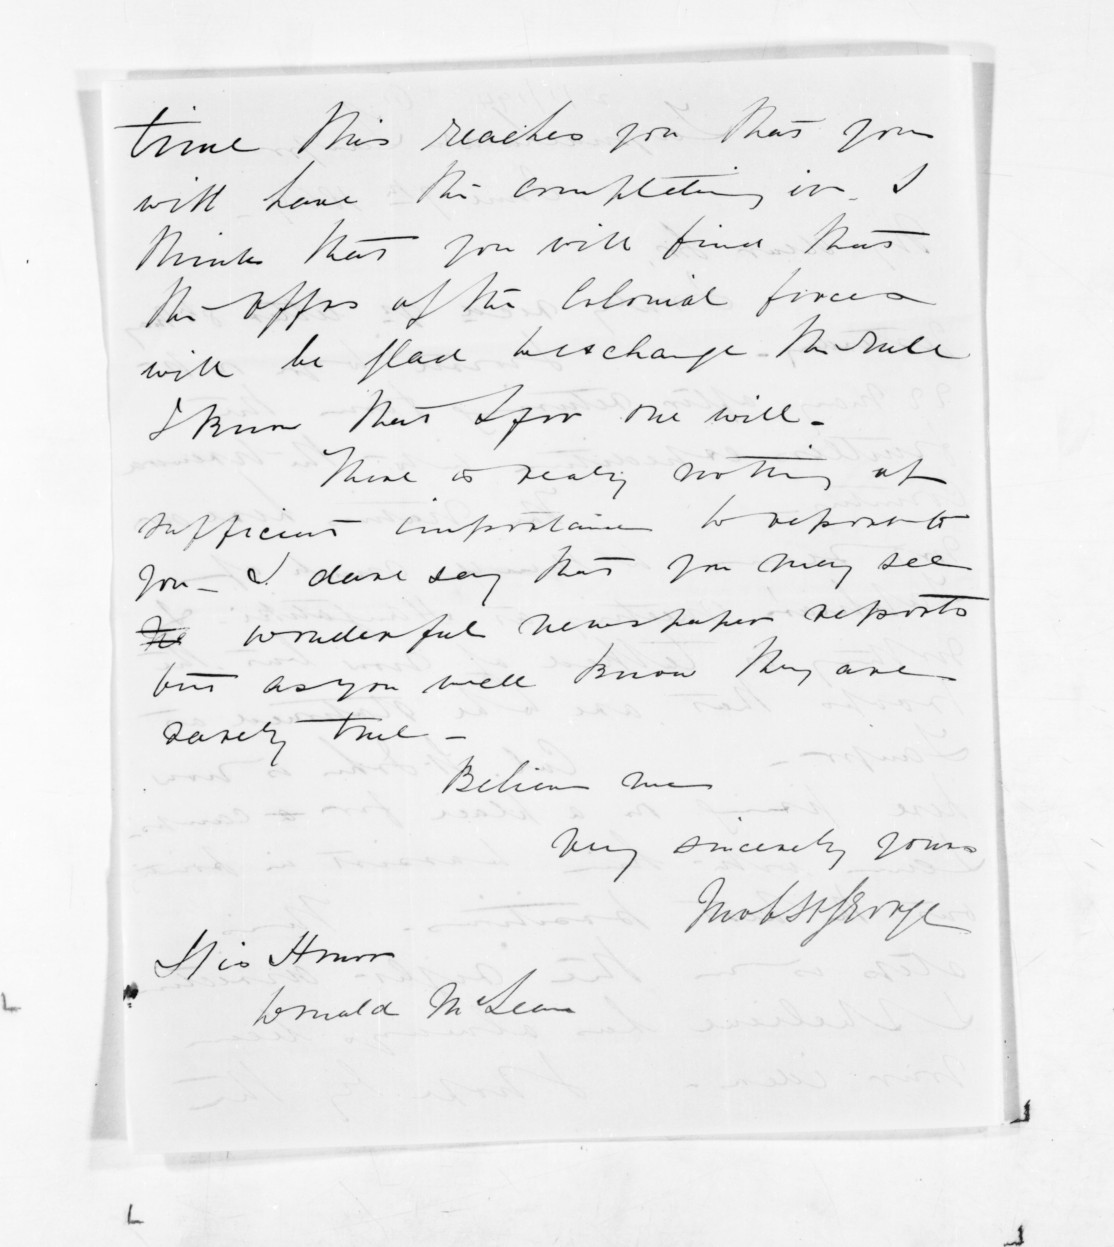 time this reaches you that you
will have the completing in. I
think that you will find that
the offrs of the Colonial forces
will be glad to exchange the rule
I know that I for one will.
There is really nothing of
sufficient importance to report to
you - I dare say that you may see
wonderful newspaper reports
but as you well know they are
rarely true -
Believe me
very sincerely yours
Jno C St George
His Honor
Donald McLean